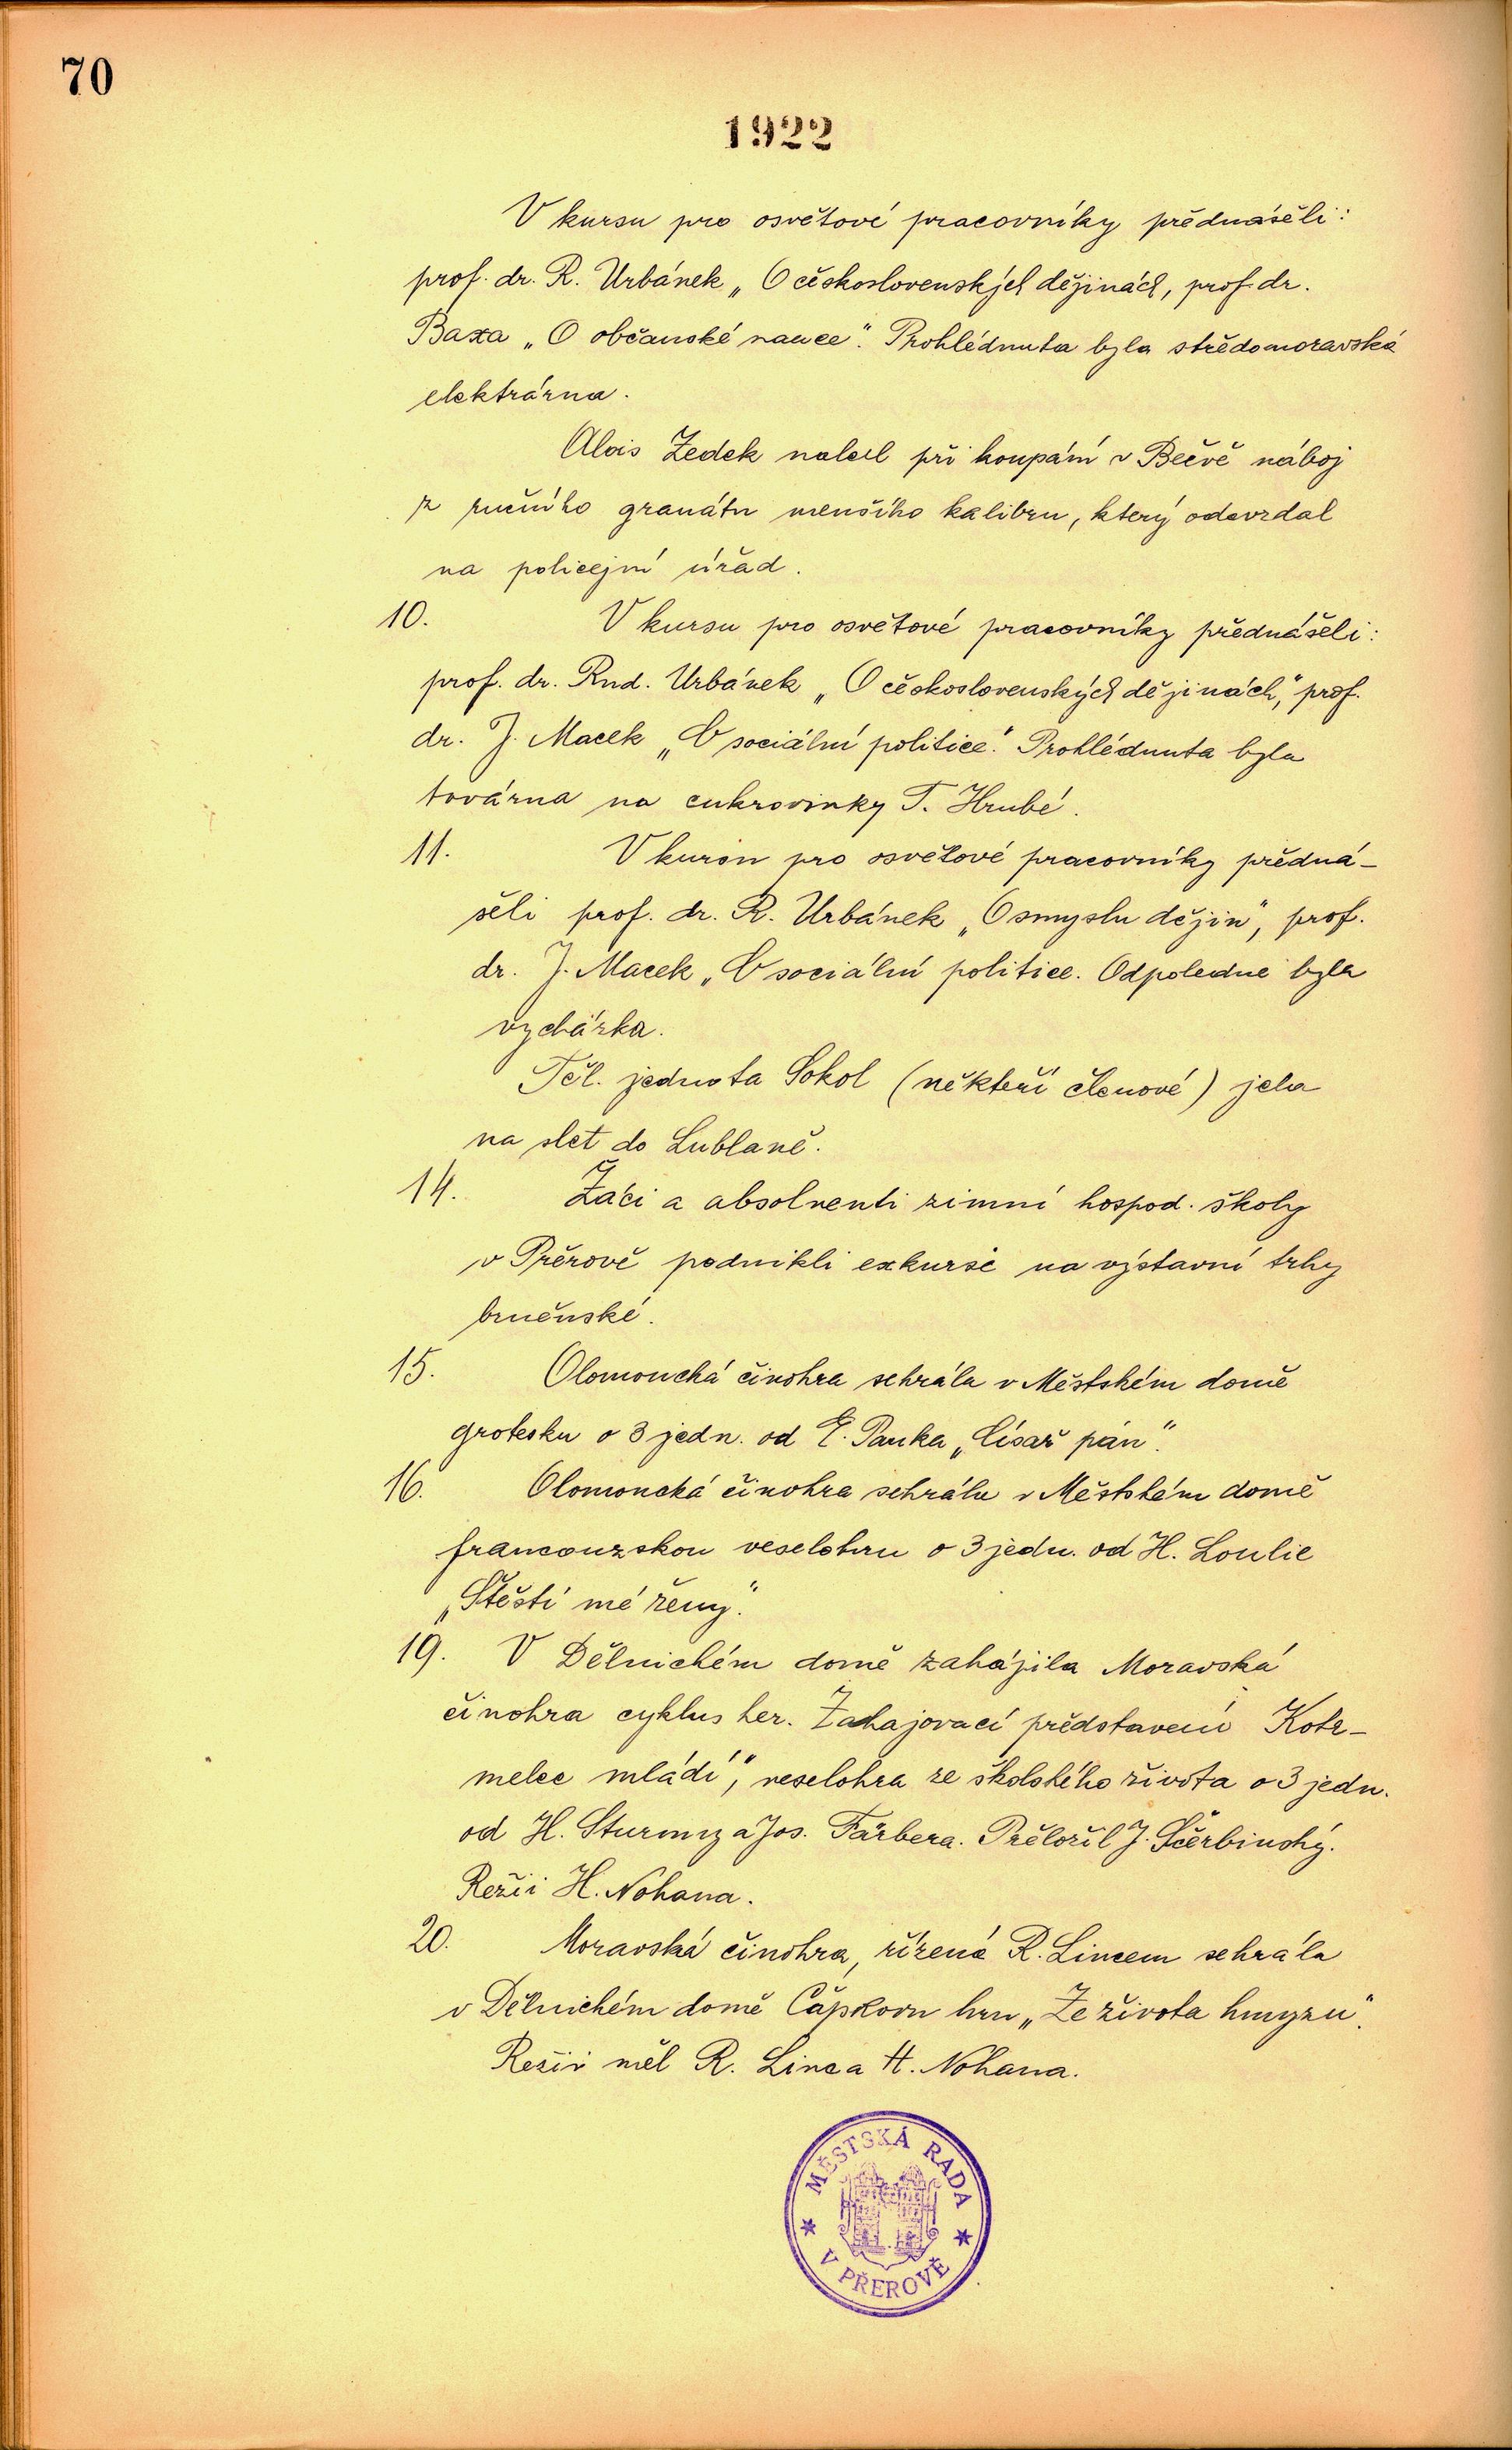 70
1922
V kursu pro osvětové pracovníky přednášeli:
prof. dr. R. Urbánek „O československých dějinách, prof. dr.
Baxa „O občanské nauce“. Prohlédnuta byla středomoravská
elektrárna.
Alois Zedek nalezl při koupání v Bečvě náboj
z ručního granátu menšího kalibru, který odevzdal
na policejní úřad.
10. V kursu pro osvětové pracovníky přednášeli:
prof. dr. Rud. Urbánek „O československých dějinách,“ prof.
dr. J. Macek „O sociální politice“. Prohlédnuta byla
továrna na cukrovinky T. Hrubé.
11. V kursu pro osvětové pracovníky předná-
šeli prof. dr. R. Urbánek „O smyslu dějin“, prof.
dr. J. Macek „O sociální politice. Odpoledne byla
vycházka.
Těl. jednota Sokol (někteří členové) jela
na slet do Lublaně.
14. Žáci a absolventi zimní hospod. školy
v Přerově podnikli exkursi na výstavní trhy
brněnské.
15. Olomoucká činohra sehrála v Městském domě
grotesku o 3 jedn. od E. Panka „Císař pán“.
16. Olomoucká činohra sehrála v Městském domě
francouzskou veselohru o 3 jedn. od H. Loulie
„Štěstí mé ženy“.
19. V Dělnickém domě zahájila Moravská
činohra cyklus her. Zahajovací představení Kotr-
melce mládí“, veselohra ze školského života o 3 jedn.
od H. Sturmyz a Jos. Färbera. Přeložil J. Ščerbinský.
Režii H. Nohana.
20. Moravská činohra, řízená R. Lincem sehrála
v Dělnickém domě Čapkovu hru „Ze života hmyzu“.
Režii měl R. Linc a H. Nohana.
MĚSTSKÁ RADA
V PŘEROVĚ